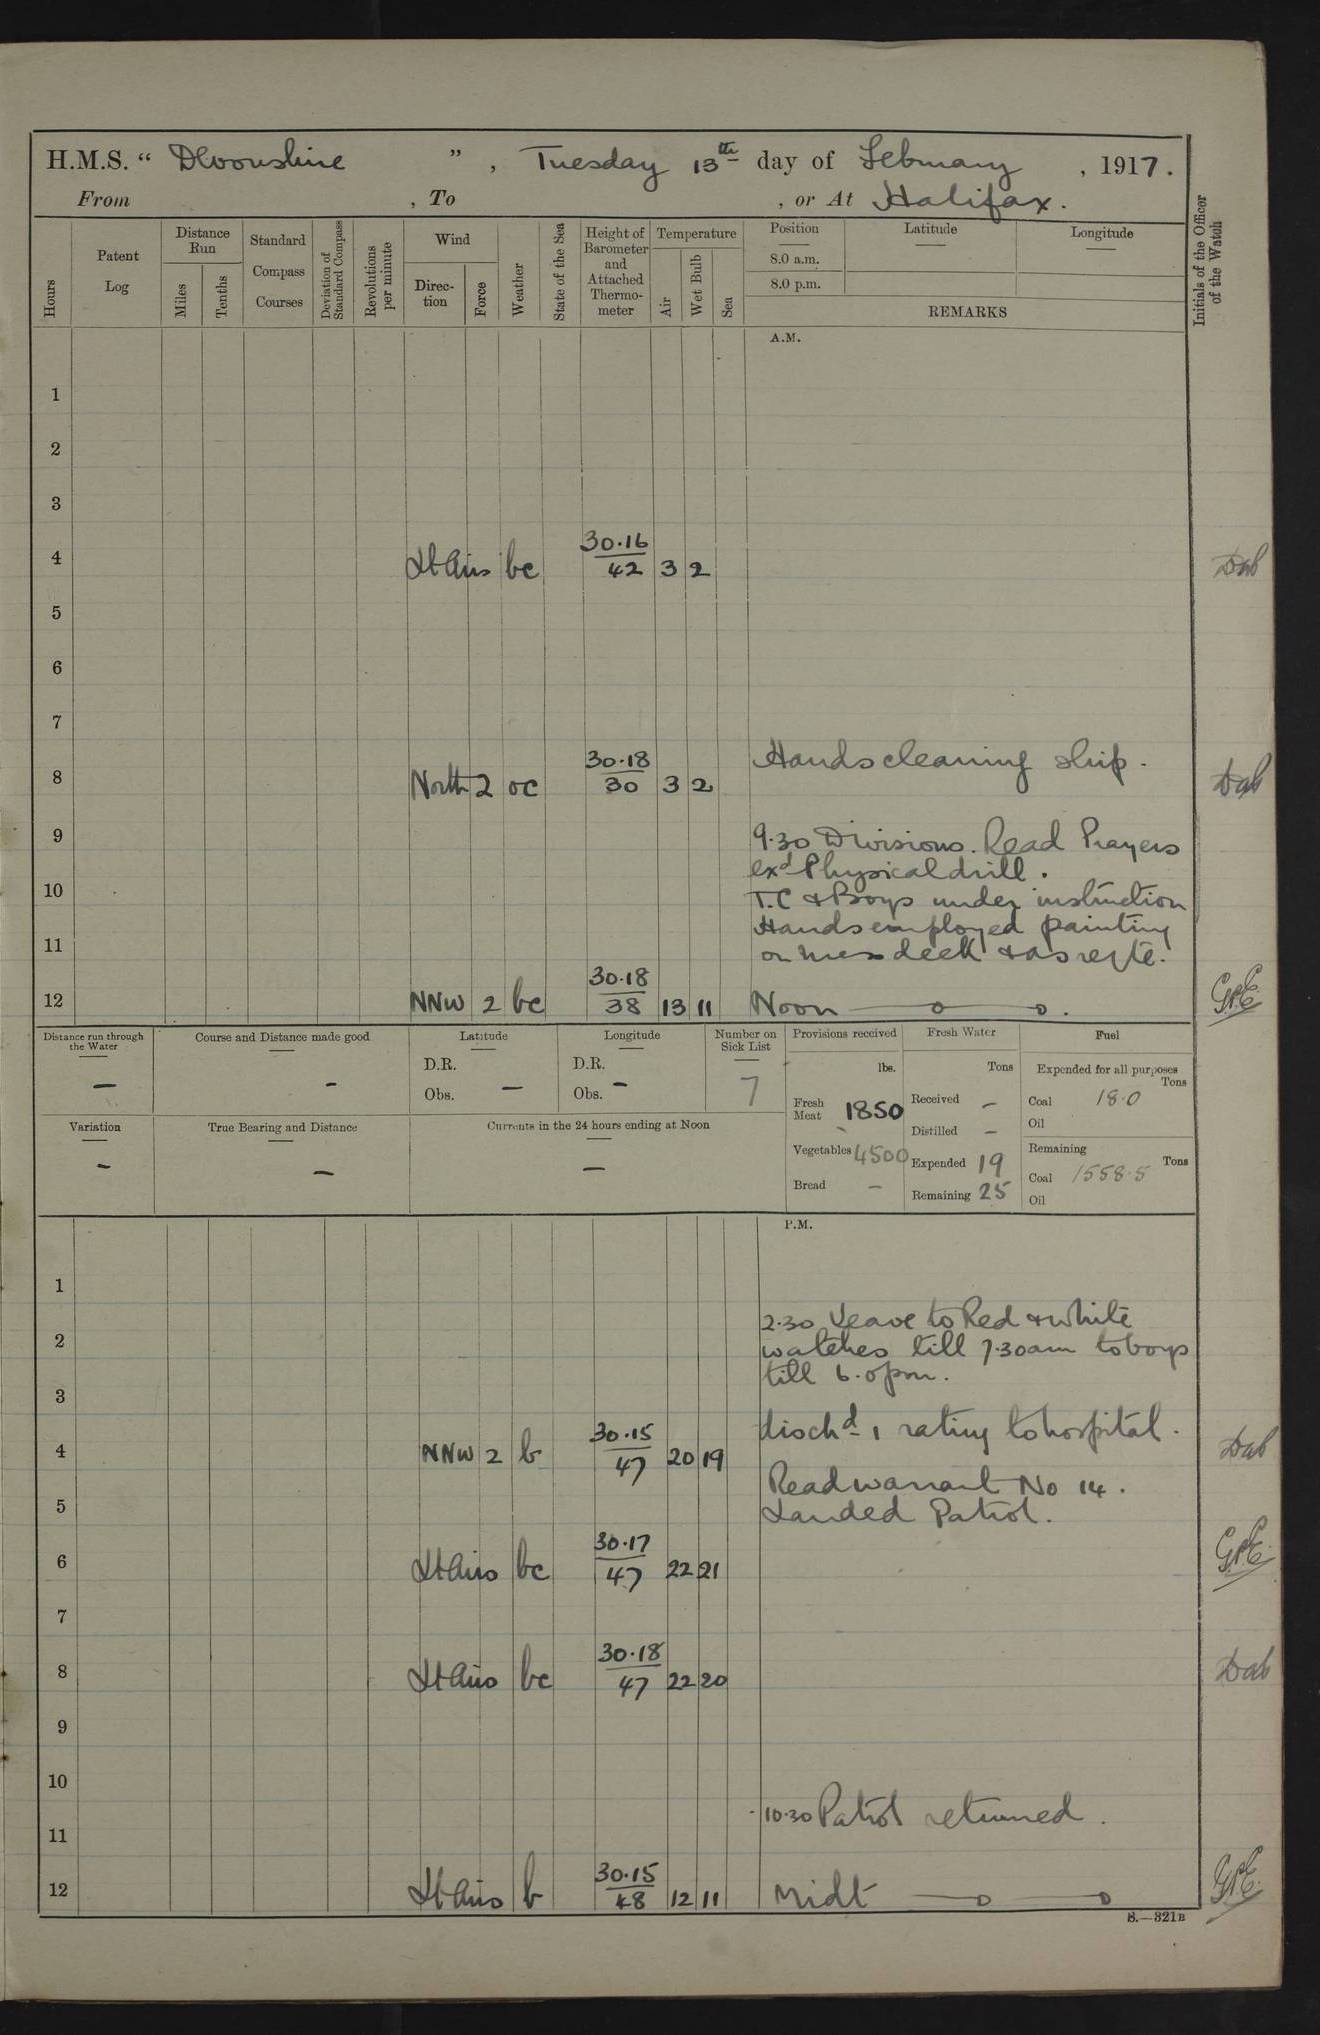 H.M.S. “ Devonshire ” , Tuesday 13th day of February , 1917.
From , To , or At Halifax.
Hours
Patent Log
Distance Run
Miles
Tenths
Standard Compass Courses
Deviation of Standard Compass
Revolutions per minute
Wind
Direc-tion
Force
Weather
State of the Sea
Height of Barometer and Attached Thermo-meter
Temperature
Air
Wet Bulb
Sea
Position
8.0 a.m.
8.0 p.m.
Latitude
Longitude
REMARKS
Initials of the Officer of the Watch
A.M.
1
2
3
4 Lt Airs bc 30.16 42 3 2 Dab
5
6
7
Hands cleaning ship.
8 North 2 oc 30.18 30 3 2 Dab
9 9.30 Divisions. Read Prayers
exd Physical drill.
10 T.C & Boys under instruction
Hands employed painting
11 on mess deck & as reqte.
12 NNW 2 bc 30.18 38 13 11 Noon
Distance run through the Water
—
Course and Distance made good
-
Latitude
D.R.
Obs. —
Longitude
D.R.
Obs. -
Number on Sick List
7
Provisions received
lbs.
Fresh Meat 1850
Vegetables 4500
Bread -
Fresh Water
Tons
Received -
Distilled -
Expended 19
Remaining 25
Fuel
Expended for all purposes
Tons
Coal 18.0
Oil
Remaining
Tons
Coal 1558.5
Oil
Variation
-
True Bearing and Distance
—
Currents in the 24 hours ending at Noon
—
P.M.
1
2.30 Leave to Red & White
2 watches till 7.30am to boys
till 6.0pm.
3
dischd 1 rating to hospital.
4 NNW 2 b 30.15 47 20 19 Dab
Read warrant No 14.
5 Landed Patrol.
6 Lt Airs bc 30.17 47 22 21
7
8 Lt Airs bc 30.18 47 22 20 Dab
9
10
10.30 Patrol returned.
11
12 Lt Airs b 30.15 48 12 11 Midt
S.—321B